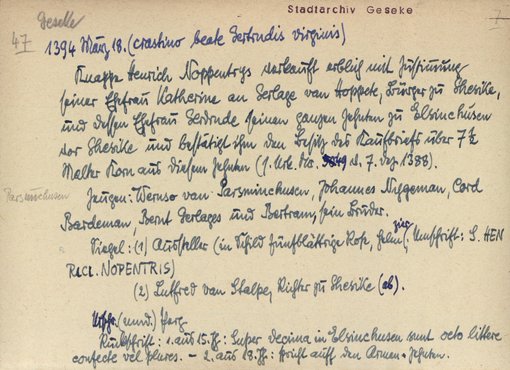 Stadtarchiv Geseke
Geselle
47
1394 März 18. (crastino beate Gertrudis virginis)
Knappe Henrich Noppentrys verkauft erblich mit Zustimmung
seiner Ehefrau Katherine an Gerlage van Hoppeke, Bürger zu Ghesike,
und dessen Ehefrau Gertrude seinen ganzen Zehnten zu Elsinchusen
vor Ghesike und bestätigt ihm den Besitz des Kaufbriefs über 7½
Malter Korn aus diesem Zehnten (s. Urk. Nr. v. 7. Dez. 1388).
Parsmichusen
Zeugen: Wernso van Parsminckusen, Johannes Niggeman, Cord
Bardeman, Bernt Gerlages und Bertram, sein Bruder.
Siegel: (1) Aussteller (im Schild fünfblättrige Rose, Helmzier, Umschrift: S. HEN
RICI. NOPENTRIS)
(2) Lutfred van Stalpe, Richter zu Ghesike (ab).
Urschr. (mnd.) Perg.
Rückschrift: 1. aus 15. Jh: Super decima in Elsinchusen sunt octo littere
confecte vel plures. - 2. aus 18. Jh: spricht auff den Armen-Zehnten.